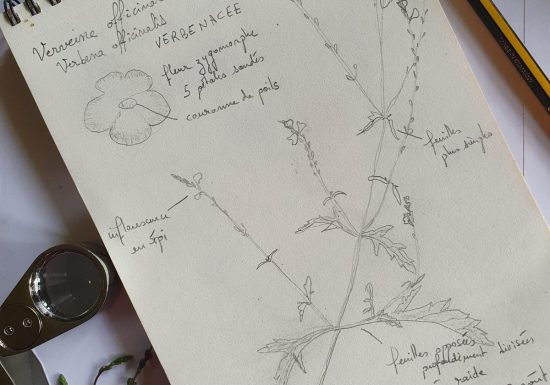 Verveine officinale
Verbena officinalis
VERBENACEE
fleur zygomorphe
5 pétales soudés
couronne de poils
feuilles
plus simples
inflorescence
en épi
feuilles opposées
profondément divisées
raide